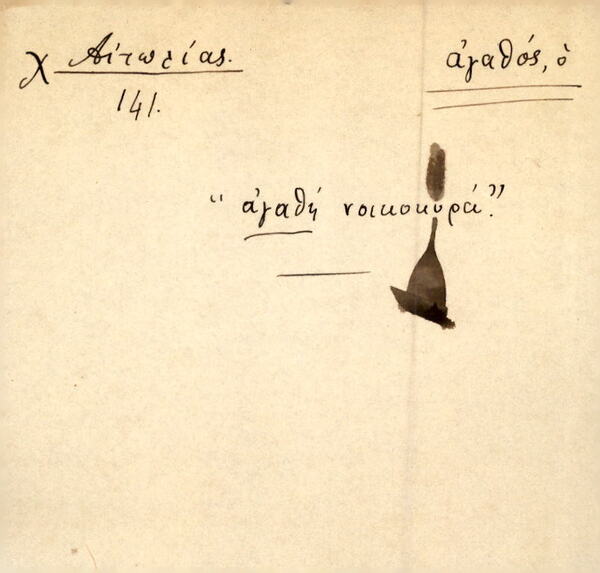 χ Αἰτωλίας.
141.
ἀγαθός, ὁ
“ἀγαθή νοικοκυρά.”